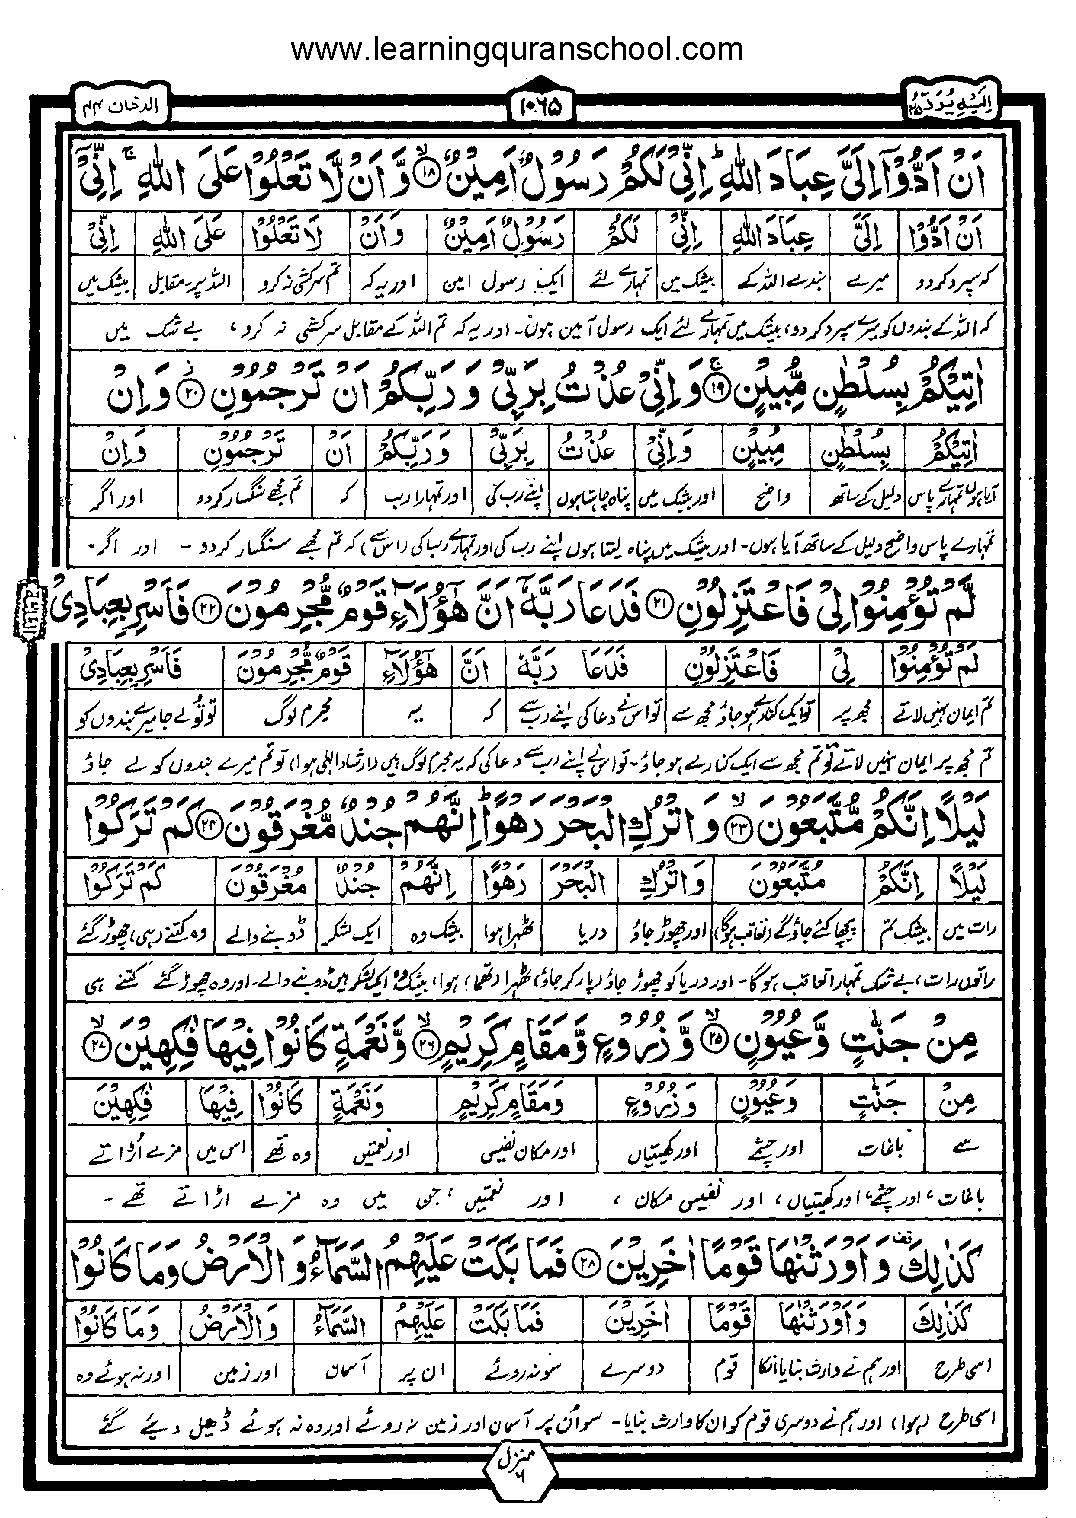 www.learningquranschool.com
الدخان ۴۴
۱۰۶۵
اِلَیْهِ یُرَدُّ ۲۵
اَنْ اَدُّوْۤا اِلَیَّ عِبَادَ اللّٰهِ ؕ اِنِّیْ لَكُمْ رَسُوْلٌ اَمِیْنٌ ۙ۱۸ وَّ اَنْ لَّا تَعْلُوْا عَلَی اللّٰهِ ۚ اِنِّیْۤ
اَنْ اَدُّوْا اِلَیَّ عِبَادَ اللّٰهِ اِنِّیْ لَكُمْ رَسُوْلٌ اَمِیْنٌ وَ اَنْ لَا تَعْلُوْا عَلَی اللّٰهِ اِنِّیْ
کہ سپرد کردو میرے بندے اللہ کے بیشک میں تمہارے لئے ایک رسول امین اور یہ کہ تم سرکشی نہ کرو اللہ پر مقابل بیشک میں
کہ اللہ کے بندوں کو میرے سپرد کردو، بیشک میں تمہارے لئے ایک رسول امین ہوں۔ اور یہ کہ تم اللہ کے مقابل سرکشی نہ کرو، بے شک میں
اٰتِیْكُمْ بِسُلْطٰنٍ مُّبِیْنٍ ۚ۱۹ وَ اِنِّیْ عُذْتُ بِرَبِّیْ وَ رَبِّكُمْ اَنْ تَرْجُمُوْنِ ۲۰ وَ اِنْ
اٰتِیْكُمْ بِسُلْطٰنٍ مُبِیْنٍ وَ اِنِّیْ عُذْتُ بِرَبِّیْ وَ رَبِّكُمْ اَنْ تَرْجُمُوْنِ وَ اِنْ
آیا ہوں تمہارے پاس دلیل کے ساتھ واضح اور بیشک میں پناہ چاہتا ہوں اپنے رب کی اور تمہارا رب کہ تم مجھے سنگسار کردو اور اگر
تمہارے پاس واضح دلیل کے ساتھ آیا ہوں۔ اور بیشک میں پناہ لیتا ہوں اپنے رب کی اور تمہارے رب کی (اس سے) کہ تم مجھے سنگسار کردو ۔ اور اگر
لَّمْ تُؤْمِنُوْا لِیْ فَاعْتَزِلُوْنِ ۲۱ فَدَعَا رَبَّهٗۤ اَنَّ هٰۤؤُلَآءِ قَوْمٌ مُّجْرِمُوْنَ ۲۲ فَاَسْرِ بِعِبَادِیْ
لَمْ تُؤْمِنُوْا لِیْ فَاعْتَزِلُوْنِ فَدَعَا رَبَّهٗ اَنَّ هٰۤؤُلَآءِ قَوْمٌ مُّجْرِمُوْنَ فَاَسْرِ بِعِبَادِیْ
تم ایمان نہیں لاتے مجھ پر تو ایک کنارے ہوجاؤ مجھ سے تو اس نے دعا کی اپنے رب سے کہ یہ مجرم لوگ تو تو لے جا میرے بندوں کو
تم مجھ پر ایمان نہیں لاتے تو تم مجھ سے ایک کنارے ہوجاؤ۔ تو اس نے اپنے رب سے دعا کی کہ یہ مجرم لوگ ہیں (ارشاد الٰہی ہوا) تو تم میرے بندوں کو لے جاؤ
لَیْلًا اِنَّكُمْ مُّتَّبَعُوْنَ ۙ۲۳ وَ اتْرُكِ الْبَحْرَ رَهْوًا ؕ اِنَّهُمْ جُنْدٌ مُّغْرَقُوْنَ ۲۴ كَمْ تَرَكُوْا
لَیْلًا اِنَّكُمْ مُتَّبَعُوْنَ وَ اتْرُكِ الْبَحْرَ رَهْوًا اِنَّهُمْ جُنْدٌ مُغْرَقُوْنَ كَمْ تَرَكُوْا
رات میں بیشک تم پیچھا کئے جاؤگے (تعاقب ہوگا) اور چھوڑ جاؤ دریا ٹھہرا ہوا بیشک وہ ایک لشکر ڈوبنے والے وہ کتنے (ہی) چھوڑ گئے
راتوں رات، بے شک تمہارا تعاقب ہوگا۔ اور دریا کو چھوڑ جاؤ (پار کرجاؤ) ٹھہرا (تھما) ہوا، بیشک وہ ایک لشکر ہیں ڈوبنے والے۔ اور وہ چھوڑ گئے کتنے ہی
مِنْ جَنّٰتٍ وَّ عُیُوْنٍ ۙ۲۵ وَّ زُرُوْعٍ وَّ مَقَامٍ كَرِیْمٍ ۙ۲۶ وَّ نَعْمَةٍ كَانُوْا فِیْهَا فٰكِهِیْنَ ۙ۲۷
مِنْ جَنّٰتٍ وَ عُیُوْنٍ وَ زُرُوْعٍ وَ مَقَامٍ كَرِیْمٍ وَ نَعْمَةٍ كَانُوْا فِیْهَا فٰكِهِیْنَ
سے باغات اور چشمے اور کھیتیاں اور مکان نفیس اور نعمتیں وہ تھے اس میں مزے اُڑاتے
باغات، اور چشمے، اور کھیتیاں، اور نفیس مکان، اور نعمتیں، جن میں وہ مزے اڑاتے تھے ۔
كَذٰلِكَ ۫ وَ اَوْرَثْنٰهَا قَوْمًا اٰخَرِیْنَ ۲۸ فَمَا بَكَتْ عَلَیْهِمُ السَّمَآءُ وَ الْاَرْضُ وَ مَا كَانُوْا
كَذٰلِكَ وَ اَوْرَثْنٰهَا قَوْمًا اٰخَرِیْنَ فَمَا بَكَتْ عَلَیْهِمُ السَّمَآءُ وَ الْاَرْضُ وَ مَا كَانُوْا
اسی طرح اور ہم نے وارث بنایا انکا قوم دوسرے سو نہ روئے ان پر آسمان اور زمین اور نہ ہوئے وہ
اسی طرح (ہوا) اور ہم نے دوسری قوم کو ان کا وارث بنایا۔ سو اُن پر آسمان اور زمین نہ روئے اور وہ نہ ہوئے ڈھیل دیئے گئے
منزل ۶